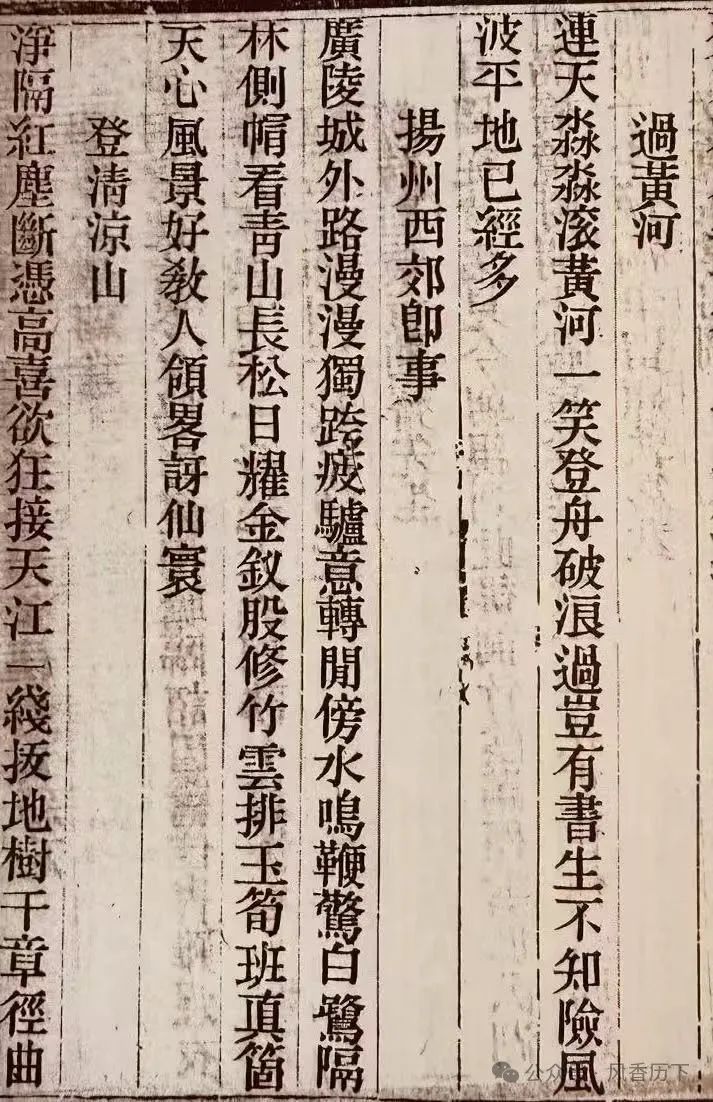 過黃河
連天淼淼滾黃河一笑登舟破浪過豈有書生不知險風
波平地已經多
揚州西郊卽事
廣陵城外路漫漫獨跨疲驢意轉閒傍水鳴鞭驚白鷺隔
林側帽看靑山長松日耀金釵股修竹雲排玉筍班眞箇
天心風景好敎人領畧訝仙寰
登淸涼山
淨隔紅塵斷憑高喜欲狂接天江一綫拔地樹千章徑曲
公众号 · 风香历下